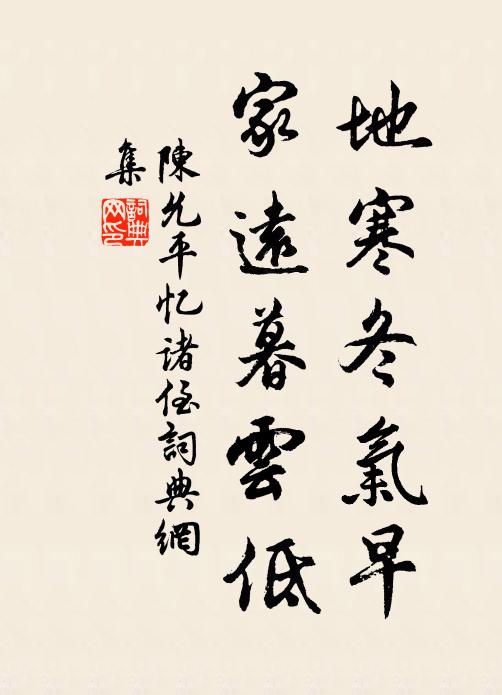 地寒冬氣早
家遠暮雲低
陳允平忆諸侄詞典網
集
詞典
网印